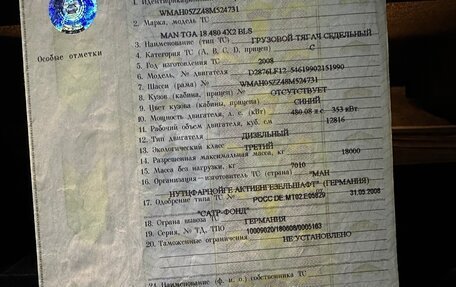 1. Идентификационный
WMAH05ZZ48M524731
2. Марка, модель ТС
MAN TGA 18.480 4X2 BLS
3. Наименование (тип ТС) ГРУЗОВОЙ-ТЯГАЧ СЕДЕЛЬНЫЙ
Особые отметки
4. Категория ТС (A, B, C, D, прицеп) C
5. Год изготовления ТС 2008
6. Модель, № двигателя D2876LF12-54619902151990
7. Шасси (рама) № WMAH05ZZ48M524731
8. Кузов (кабина, прицеп) № ОТСУТСТВУЕТ
9. Цвет кузова (кабины, прицепа) СИНИЙ
10. Мощность двигателя, л. с. (кВт) 480.08 л с 353 кВт
11. Рабочий объем двигателя, куб. см 12816
12. Тип двигателя ДИЗЕЛЬНЫЙ
13. Экологический класс ТРЕТИЙ
14. Разрешенная максимальная масса, кг 18000
15. Масса без нагрузки, кг 7010
16. Организация—изготовитель ТС (страна) "МАН
НУТЦФАРЦОЙГЕ АКТИЕНГЕЗЕЛЬШАФТ" (ГЕРМАНИЯ)
17. Одобрение типа ТС № РОСС DE.MT02.E05829 31.05.2008
"САТР-ФОНД"
18. Страна вывоза ТС ГЕРМАНИЯ
19. Серия, № ТД, ТПО 10009020/180608/0005163
20. Таможенные ограничения НЕ УСТАНОВЛЕНО
21. Наименование (ф. и. о.) собственника ТС